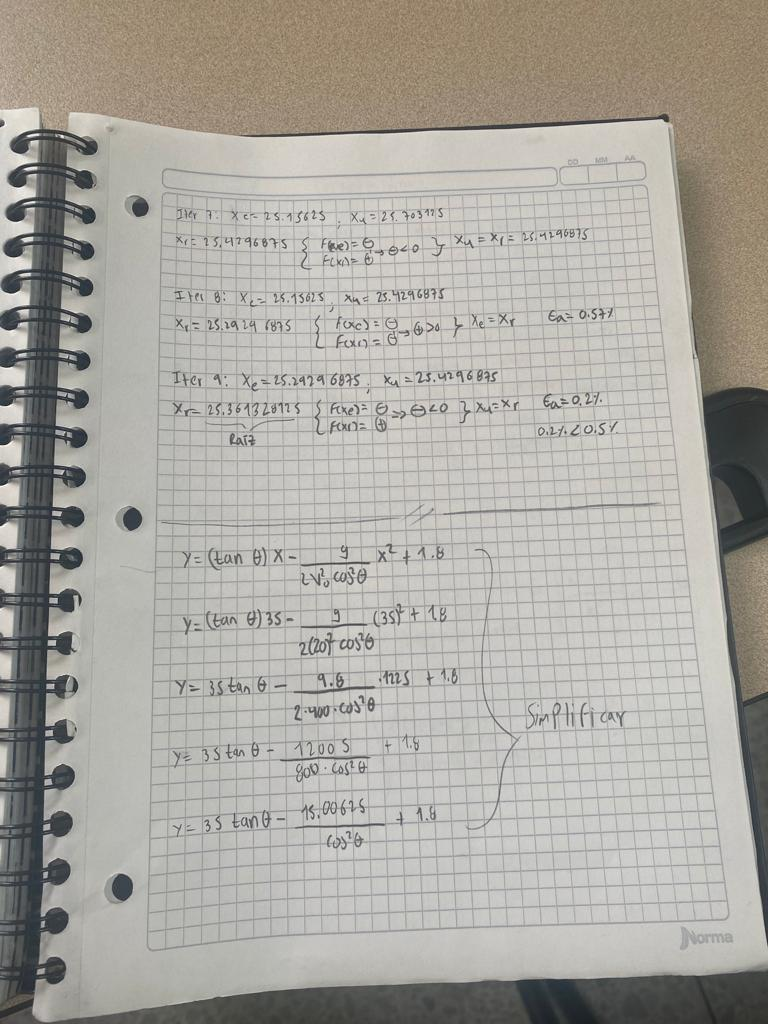 DD MM AA
Iter 7: Xe= 25.15625 ; Xu = 25.703125
Xr = 25.4296875 { F(xe) = ⊖ F(xr) = ⊕ → ⊖<0 } Xu = Xr = 25.4296875
Iter 8: Xe = 25.15625 ; Xu = 25.4296875
Xr = 25.2929 6875 { F(xe) = ⊖ F(xr) = ⊖ → ⊕>0 } Xe = Xr Ea = 0.57%
Iter 9: Xe = 25.29296875 ; Xu = 25.4296875
Xr = 25.361328125 { F(xe) = ⊖ F(xr) = ⊕ => ⊖<0 } Xu = Xr Ea = 0.2%
Raíz 0.2% < 0.5%
y = (tan θ) x - g/(2V₀² cos²θ) x² + 1.8
y = (tan θ) 35 - g/(2(20)² cos²θ) (35)² + 1.8
y = 35 tan θ - 9.8/(2·400·cos²θ) ·1225 + 1.8
Simplificar
y = 35 tan θ - 12005/(800·cos²θ) + 1.8
y = 35 tan θ - 15.00625/cos²θ + 1.8
Norma